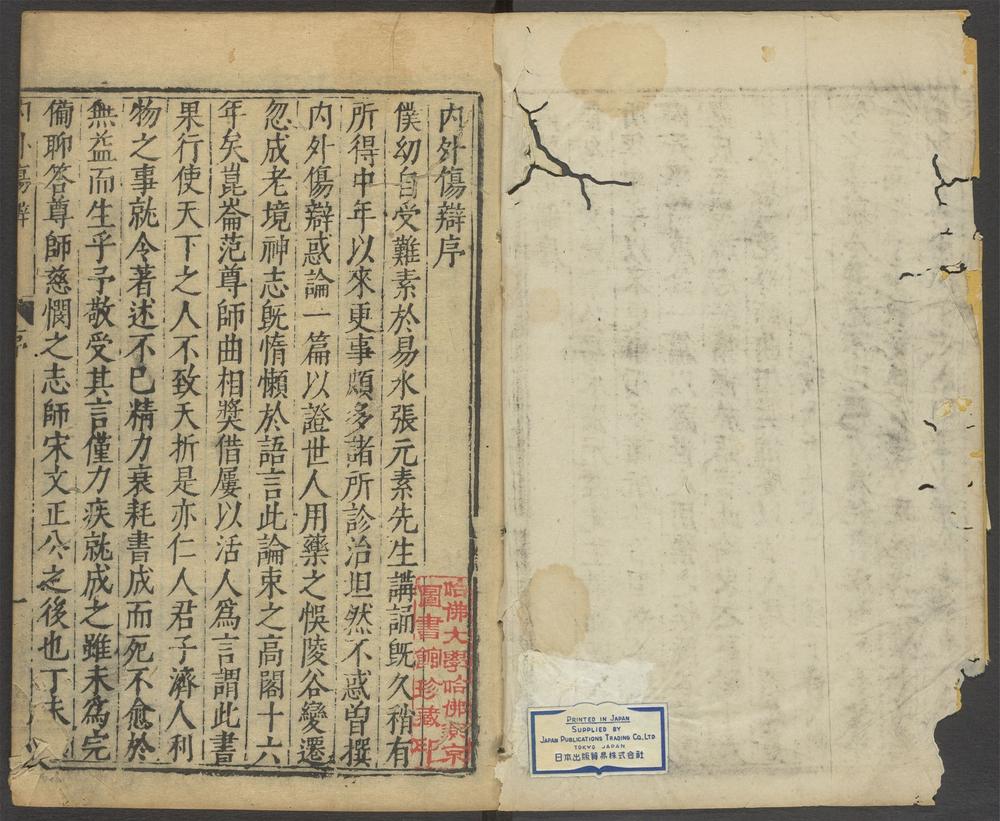 内外傷辯序
僕幼自受難素於易水張元素先生講誦旣久稍有
所得中年以來更事頗多諸所診治坦然不惑曽撰
内外傷辯惑論一篇以證世人用藥之悞陵谷變遷
忽成老境神志旣惰懶於語言此論束之高閣十六
年矣崑崙范尊師曲相奬借屢以活人爲言謂此書
果行使天下之人不致夭折是亦仁人君子濟人利
物之事就令著述不已精力衰耗書成而死不愈於
無益而生乎予敬受其言僅力疾就成之雖未爲完
備聊答尊師慈憫之志師宋文正公之後也丁未
内外傷辯
序
一
哈佛大學哈佛燕京
圖書館珍藏印
PRINTED IN JAPAN
SUPPLIED BY
JAPAN PUBLICATIONS TRADING CO., LTD
TOKYO JAPAN
日本出版貿易株式会社